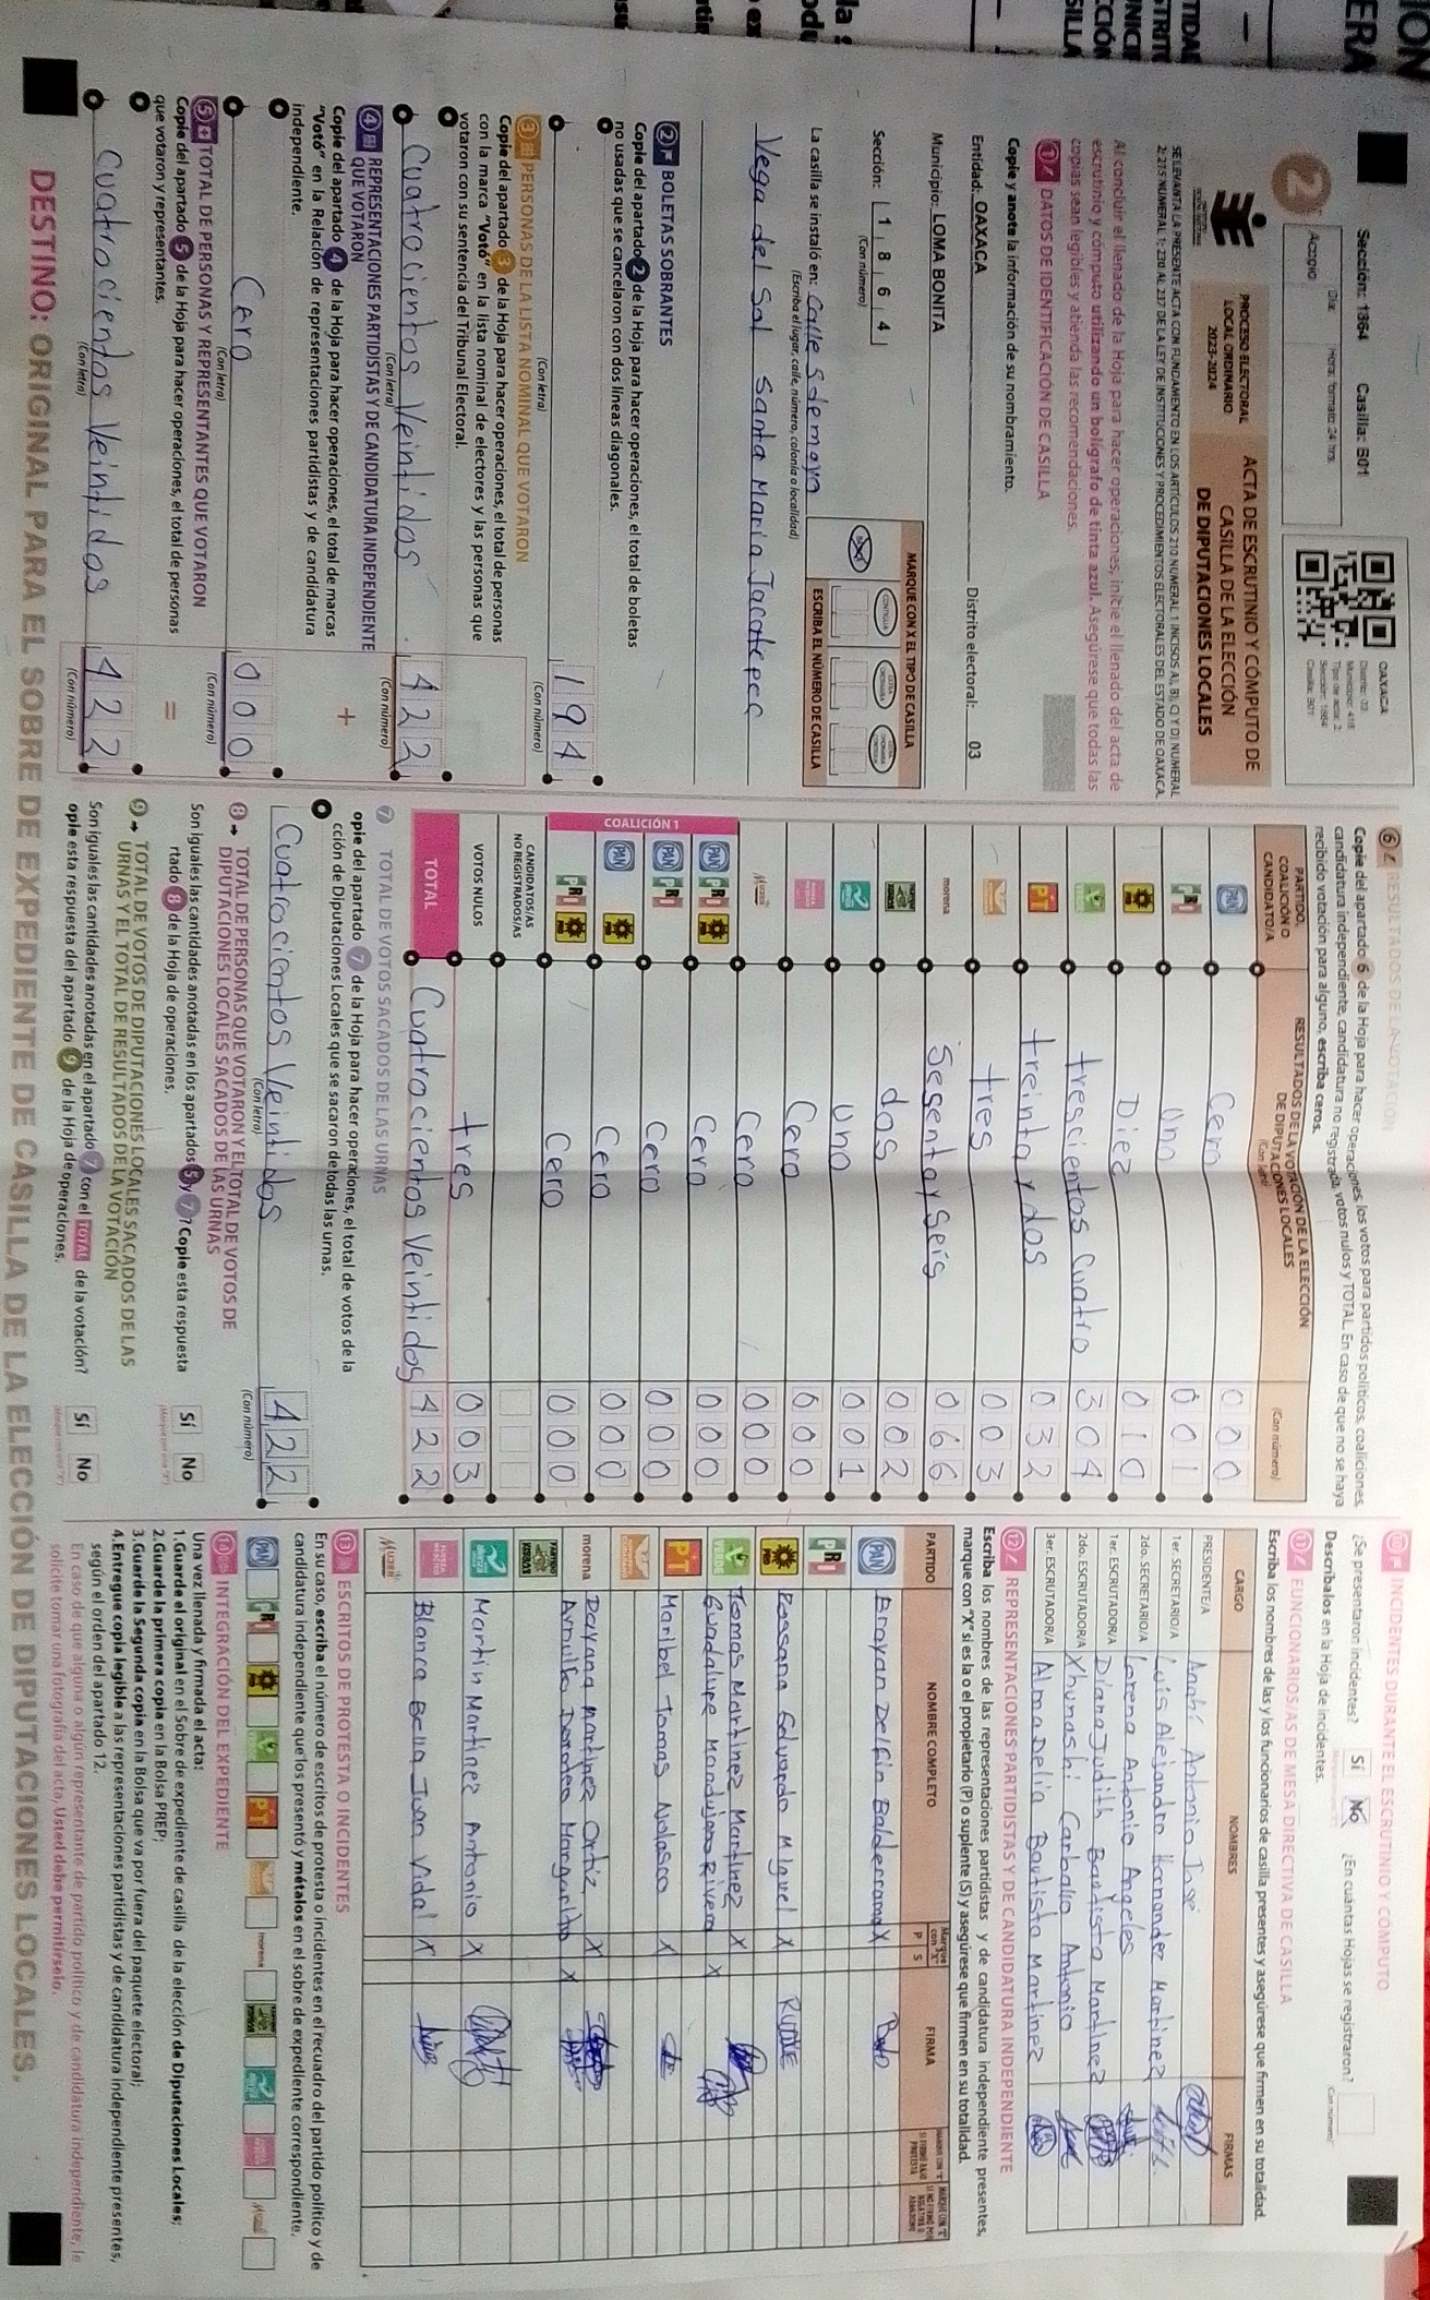 Sección: 1364 Casilla: B01
OAXACA
Acopio
Día:
Hora: formato 24 hrs.
2
PROCESO ELECTORAL
LOCAL ORDINARIO
2023-2024
ACTA DE ESCRUTINIO Y CÓMPUTO DE
CASILLA DE LA ELECCIÓN
DE DIPUTACIONES LOCALES
Al concluir el llenado de la Hoja para hacer operaciones, inicie el llenado del acta de
escrutinio y cómputo utilizando un bolígrafo de tinta azul. Asegúrese que todas las
copias sean legibles y atienda las recomendaciones.
1 DATOS DE IDENTIFICACIÓN DE CASILLA
Copie y anote la información de su nombramiento.
Entidad: OAXACA Distrito electoral: 03
Municipio: LOMA BONITA
Sección: 1 8 6 4
(Con número)
MARQUE CON X EL TIPO DE CASILLA
ESCRIBA EL NÚMERO DE CASILLA
La casilla se instaló en: Calle 5 de mayo
(Escriba el lugar, calle, número, colonia o localidad)
Vega del Sol Santa Maria Jacatepec
2 BOLETAS SOBRANTES
Copie del apartado 2 de la Hoja para hacer operaciones, el total de boletas
no usadas que se cancelaron con dos líneas diagonales.
194
(Con letra) (Con número)
3 PERSONAS DE LA LISTA NOMINAL QUE VOTARON
Copie del apartado 3 de la Hoja para hacer operaciones, el total de personas
con la marca "Votó" en la lista nominal de electores y las personas que
votaron con su sentencia del Tribunal Electoral.
Cuatrocientos Veintidos 422
(Con letra) (Con número)
4 REPRESENTACIONES PARTIDISTAS Y DE CANDIDATURA INDEPENDIENTE
QUE VOTARON
Copie del apartado 4 de la Hoja para hacer operaciones, el total de marcas
"Votó" en la Relación de representaciones partidistas y de candidatura
independiente.
+
Cero 000
(Con letra) (Con número)
5 TOTAL DE PERSONAS Y REPRESENTANTES QUE VOTARON
Copie del apartado 5 de la Hoja para hacer operaciones, el total de personas
que votaron y representantes.
=
Cuatrocientos Veintidos 422
(Con letra) (Con número)
6 RESULTADOS DE LA VOTACIÓN
Copie del apartado 6 de la Hoja para hacer operaciones, los votos para partidos políticos, coaliciones,
candidatura independiente, candidatura no registrada, votos nulos y TOTAL. En caso de que no se haya
recibido votación para alguno, escriba ceros.
PARTIDO,
COALICIÓN O
CANDIDATO/A
RESULTADOS DE LA VOTACIÓN DE LA ELECCIÓN
DE DIPUTACIONES LOCALES
(Con letra) (Con número)
PAN Cero 000
PRI Uno 001
PRD Diez 010
VERDE trescientos Cuatro 304
PT treinta y dos 032
tres 003
morena Sesenta y Seis 066
dos 002
Uno 001
Cero 000
MUJER Cero 000
COALICIÓN 1
PAN PRI PRD Cero 000
PAN PRI Cero 000
PAN PRD Cero 000
PRI PRD Cero 000
CANDIDATOS/AS
NO REGISTRADOS/AS
VOTOS NULOS tres 003
TOTAL Cuatrocientos Veintidos 422
7 TOTAL DE VOTOS SACADOS DE LAS URNAS
opie del apartado 7 de la Hoja para hacer operaciones, el total de votos de la
cción de Diputaciones Locales que se sacaron de todas las urnas.
Cuatrocientos Veintidos 422
(Con letra) (Con número)
8 TOTAL DE PERSONAS QUE VOTARON Y EL TOTAL DE VOTOS DE
DIPUTACIONES LOCALES SACADOS DE LAS URNAS
Son iguales las cantidades anotadas en los apartados 5 y 7? Copie esta respuesta
rtado 8 de la Hoja de operaciones.
Sí No
9 TOTAL DE VOTOS DE DIPUTACIONES LOCALES SACADOS DE LAS
URNAS Y EL TOTAL DE RESULTADOS DE LA VOTACIÓN
Son iguales las cantidades anotadas en el apartado 7 con el TOTAL de la votación?
opie esta respuesta del apartado 9 de la Hoja de operaciones.
Sí No
10 INCIDENTES DURANTE EL ESCRUTINIO Y CÓMPUTO
¿Se presentaron incidentes? Sí No ¿En cuántas Hojas se registraron?
Descríbalos en la Hoja de incidentes.
11 FUNCIONARIOS/AS DE MESA DIRECTIVA DE CASILLA
Escriba los nombres de las y los funcionarios de casilla presentes y asegúrese que firmen en su totalidad.
CARGO NOMBRES FIRMAS
PRESIDENTE/A Anahí Antonio Jose
1er. SECRETARIO/A Luis Alejandro Hernandez Martinez
2do. SECRETARIO/A Lorena Antonio Angeles
1er. ESCRUTADOR/A Diana Judith Bautista Martinez
2do. ESCRUTADOR/A Xhunashi Carballo Antonio
3er. ESCRUTADOR/A Alma Delia Bautista Martinez
12 REPRESENTACIONES PARTIDISTAS Y DE CANDIDATURA INDEPENDIENTE
Escriba los nombres de las representaciones partidistas y de candidatura independiente presentes,
marque con "X" si es la o el propietario (P) o suplente (S) y asegúrese que firmen en su totalidad.
PARTIDO NOMBRE COMPLETO P S FIRMA
PAN Brayan Delfin Balderrama X
PRI
PRD Rossana Eduardo Miguel X
VERDE Tomas Martinez Martinez X
Guadalupe Mandujano Rivera X
PT Maribel Tomas Nolasco X
morena Dayana Martinez Ortiz X
X
Martin Martinez Antonio X
Blanca Bella Juan Vidal X
MUJER
13 ESCRITOS DE PROTESTA O INCIDENTES
En su caso, escriba el número de escritos de protesta o incidentes en el recuadro del partido político y de
candidatura independiente que los presentó y métalos en el sobre de expediente correspondiente.
PAN PRI PRD VERDE PT morena
14 INTEGRACIÓN DEL EXPEDIENTE
Una vez llenada y firmada el acta:
1.Guarde el original en el Sobre de expediente de casilla de la elección de Diputaciones Locales;
2.Guarde la primera copia en la Bolsa PREP;
3.Guarde la Segunda copia en la Bolsa que va por fuera del paquete electoral;
4.Entregue copia legible a las representaciones partidistas y de candidatura independiente presentes,
según el orden del apartado 12.
En caso de que alguna o algún representante de partido político y de candidatura independiente, le
solicite tomar una fotografía del acta, Usted debe permitírselo.
DESTINO: ORIGINAL PARA EL SOBRE DE EXPEDIENTE DE CASILLA DE LA ELECCIÓN DE DIPUTACIONES LOCALES.